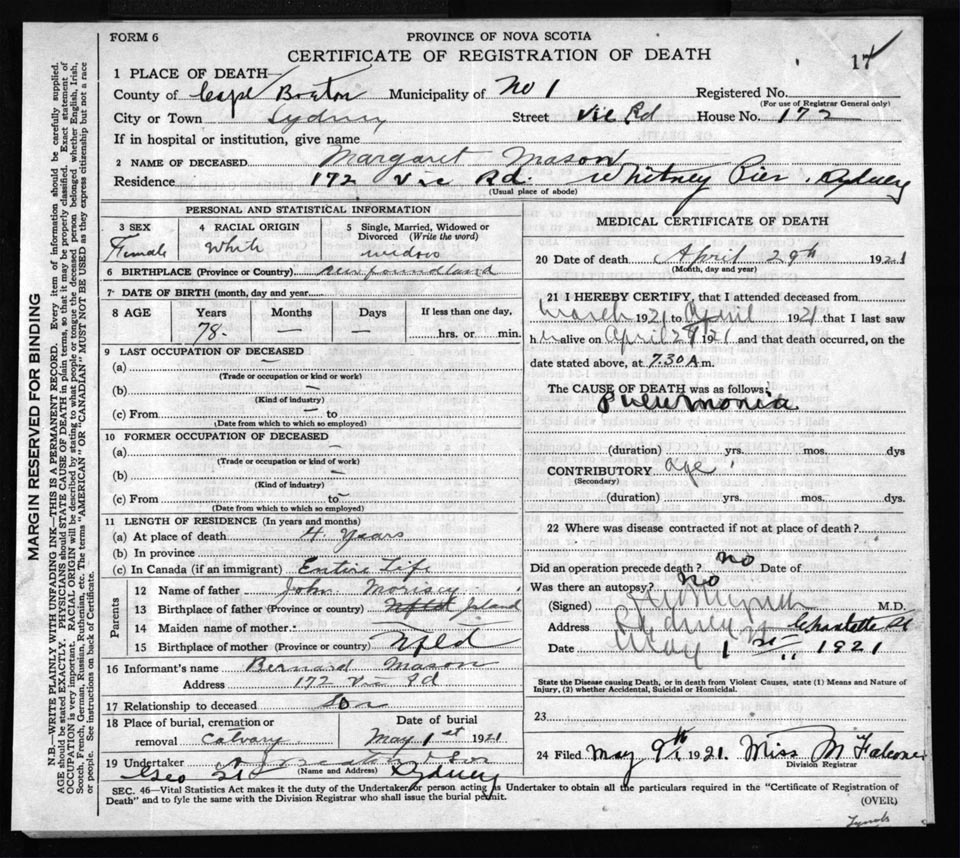 FORM 6
PROVINCE OF NOVA SCOTIA
CERTIFICATE OF REGISTRATION OF DEATH
17
1 PLACE OF DEATH—
County of Cape Breton Municipality of No 1 Registered No.
(For use of Registrar General only)
City or Town Sydney Street Vic Rd House No. 172
If in hospital or institution, give name
2 NAME OF DECEASED Margaret Mason
Residence 172 Vic Rd. Whitney Pier, Sydney
(Usual place of abode)
PERSONAL AND STATISTICAL INFORMATION
3 SEX Female
4 RACIAL ORIGIN White
5 Single, Married, Widowed or Divorced (Write the word) widow
6 BIRTHPLACE (Province or Country) Newfoundland
7 DATE OF BIRTH (month, day and year)
8 AGE Years Months Days If less than one day,
78 — — hrs. or min.
9 LAST OCCUPATION OF DECEASED
(a) —
(Trade or occupation or kind or work)
(b) —
(Kind of industry)
(c) From — to
(Date from which to which so employed)
10 FORMER OCCUPATION OF DECEASED
(a) —
(Trade or occupation or kind of work)
(b) —
(Kind of industry)
(c) From to —
(Date from which to which so employed)
11 LENGTH OF RESIDENCE (In years and months)
(a) At place of death 4 Years
(b) In province
(c) In Canada (if an immigrant) Entire Life
Parents
12 Name of father John Morisey
13 Birthplace of father (Province or country) Nfld
14 Maiden name of mother —
15 Birthplace of mother (Province or country) Nfld
16 Informant's name Bernard Mason
Address 172 Vic Rd
17 Relationship to deceased son
18 Place of burial, cremation or removal Calvary
Date of burial May 1st 1921
19 Undertaker
(Name and Address)
Geo St Sydney
MEDICAL CERTIFICATE OF DEATH
20 Date of death April 29th 1921
(Month, day and year)
21 I HEREBY CERTIFY, that I attended deceased from
March 1921 to April 1921 that I last saw
h alive on April 29 1921 and that death occurred, on the
date stated above, at 7.30 A.m.
The CAUSE OF DEATH was as follows:
Pneumonia
(duration) yrs. mos. dys
CONTRIBUTORY age
(Secondary)
(duration) yrs. mos. dys.
22 Where was disease contracted if not at place of death?
Did an operation precede death? no Date of
Was there an autopsy? No
(Signed) M.D.
Address Sydney Charlotte St
Date May 1st 1921
State the Disease causing Death, or in death from Violent Causes, state (1) Means and Nature of
Injury, (2) whether Accidental, Suicidal or Homicidal.
23
24 Filed May 9th 1921. Miss M
Division Registrar
SEC. 46—Vital Statistics Act makes it the duty of the Undertaker or person acting as Undertaker to obtain all the particulars required in the "Certificate of Registration of
Death" and to fyle the same with the Division Registrar who shall issue the burial permit.
(OVER)
MARGIN RESERVED FOR BINDING
N.B.—WRITE PLAINLY WITH UNFADING INK—THIS IS A PERMANENT RECORD. Every item of information should be carefully supplied.
AGE should be stated EXACTLY. PHYSICIANS should STATE CAUSE OF DEATH in plain terms, so that it may be properly classified. Exact statement of
OCCUPATION is very important. RACIAL ORIGIN will be described by stating to what people or tongue the deceased person belonged whether English, Irish,
Scotch, French, German, Russian, Ruthenian, etc. The terms "AMERICAN" OR "CANADIAN" MUST NOT BE USED as they express citizenship but not a race
or people. See instructions on back of Certificate.